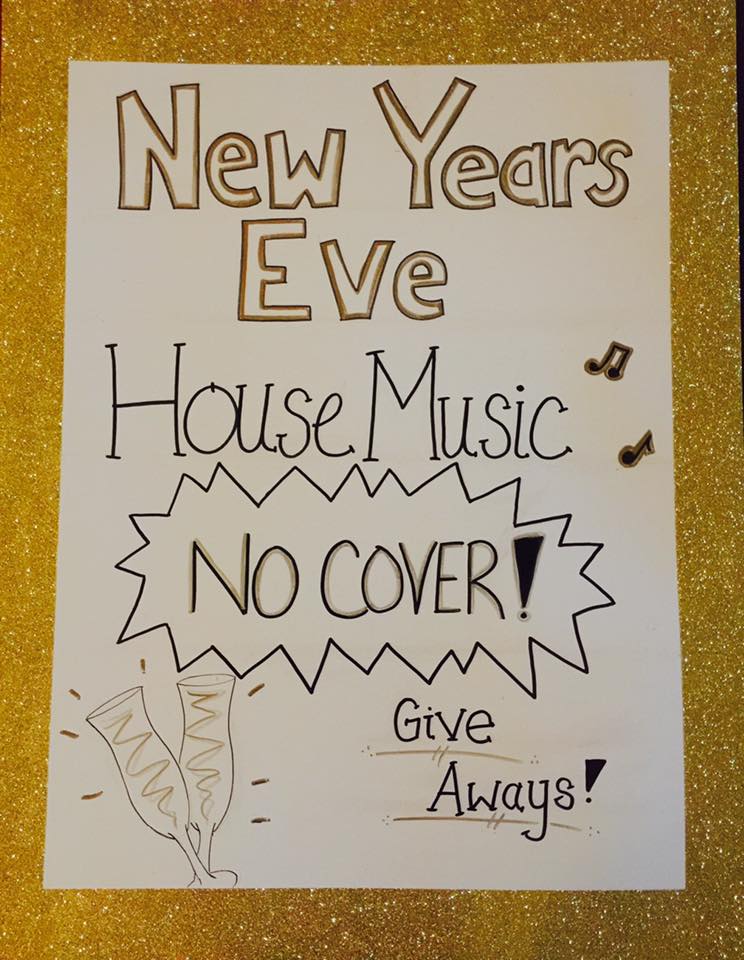 New Years
Eve
House Music
NO COVER!
Give
Aways!